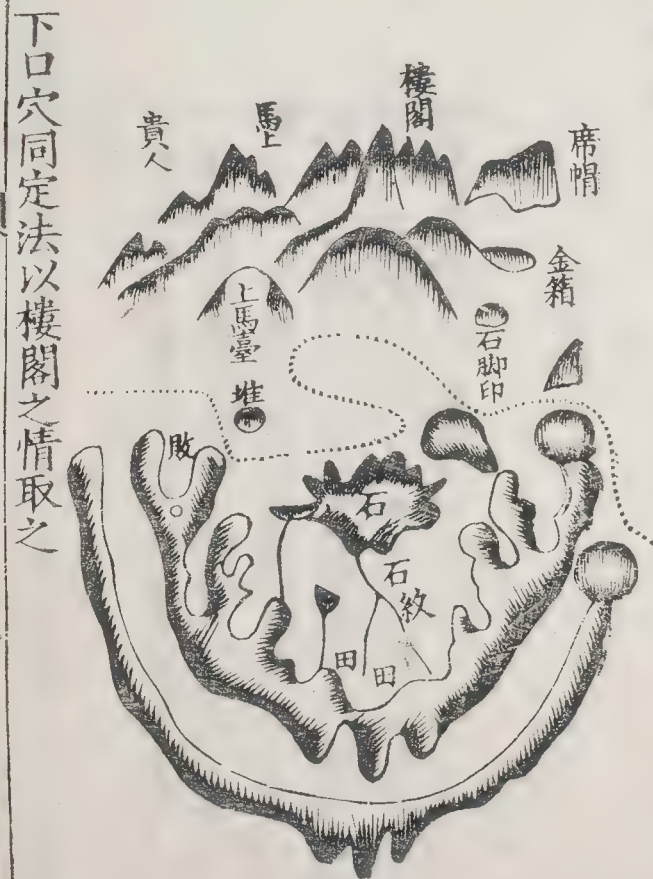 席帽
樓閣
馬上
貴人
金箱
石脚印
上馬臺
堆
敗
石
石紋
田
田
下口穴同定法以樓閣之情取之